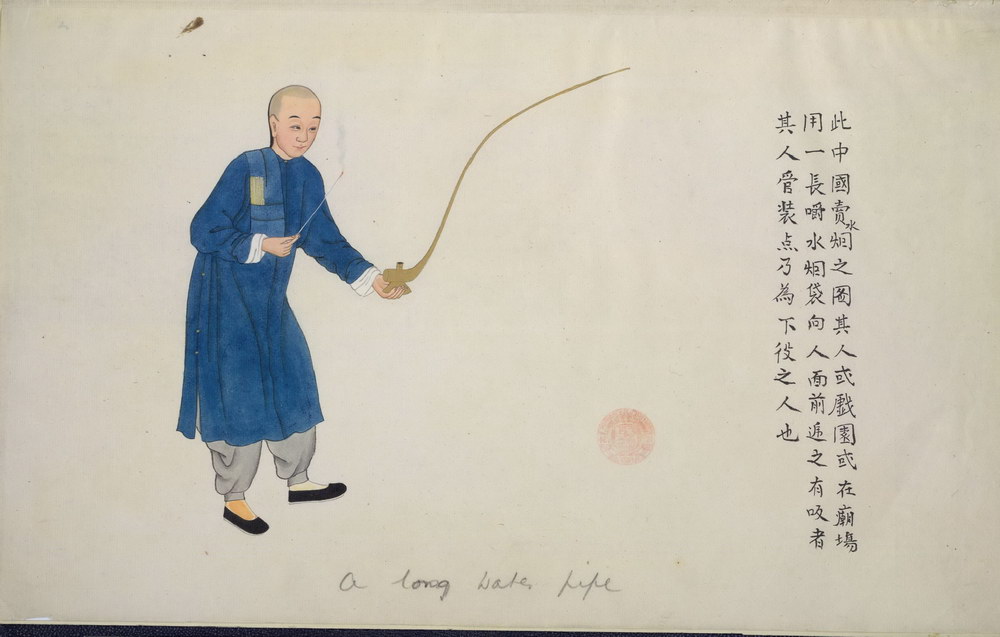 此中國賣水烟之圖其人或戲園或在廟場
用一長嚼水烟袋向人面前遞之有吸者
其人管装点乃為下役之人也
a long water pipe